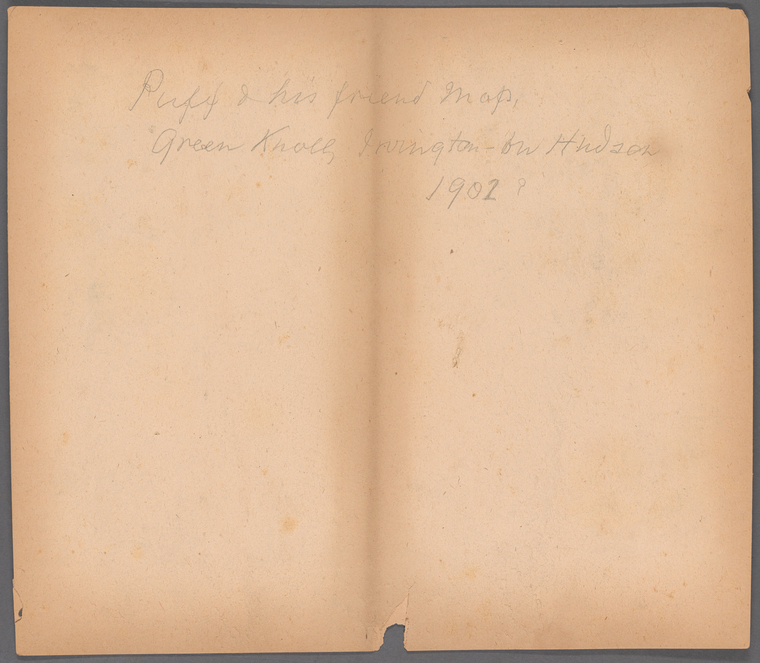 Puff & his friend Mops,
Green Knoll, Irvington-on Hudson
1902?